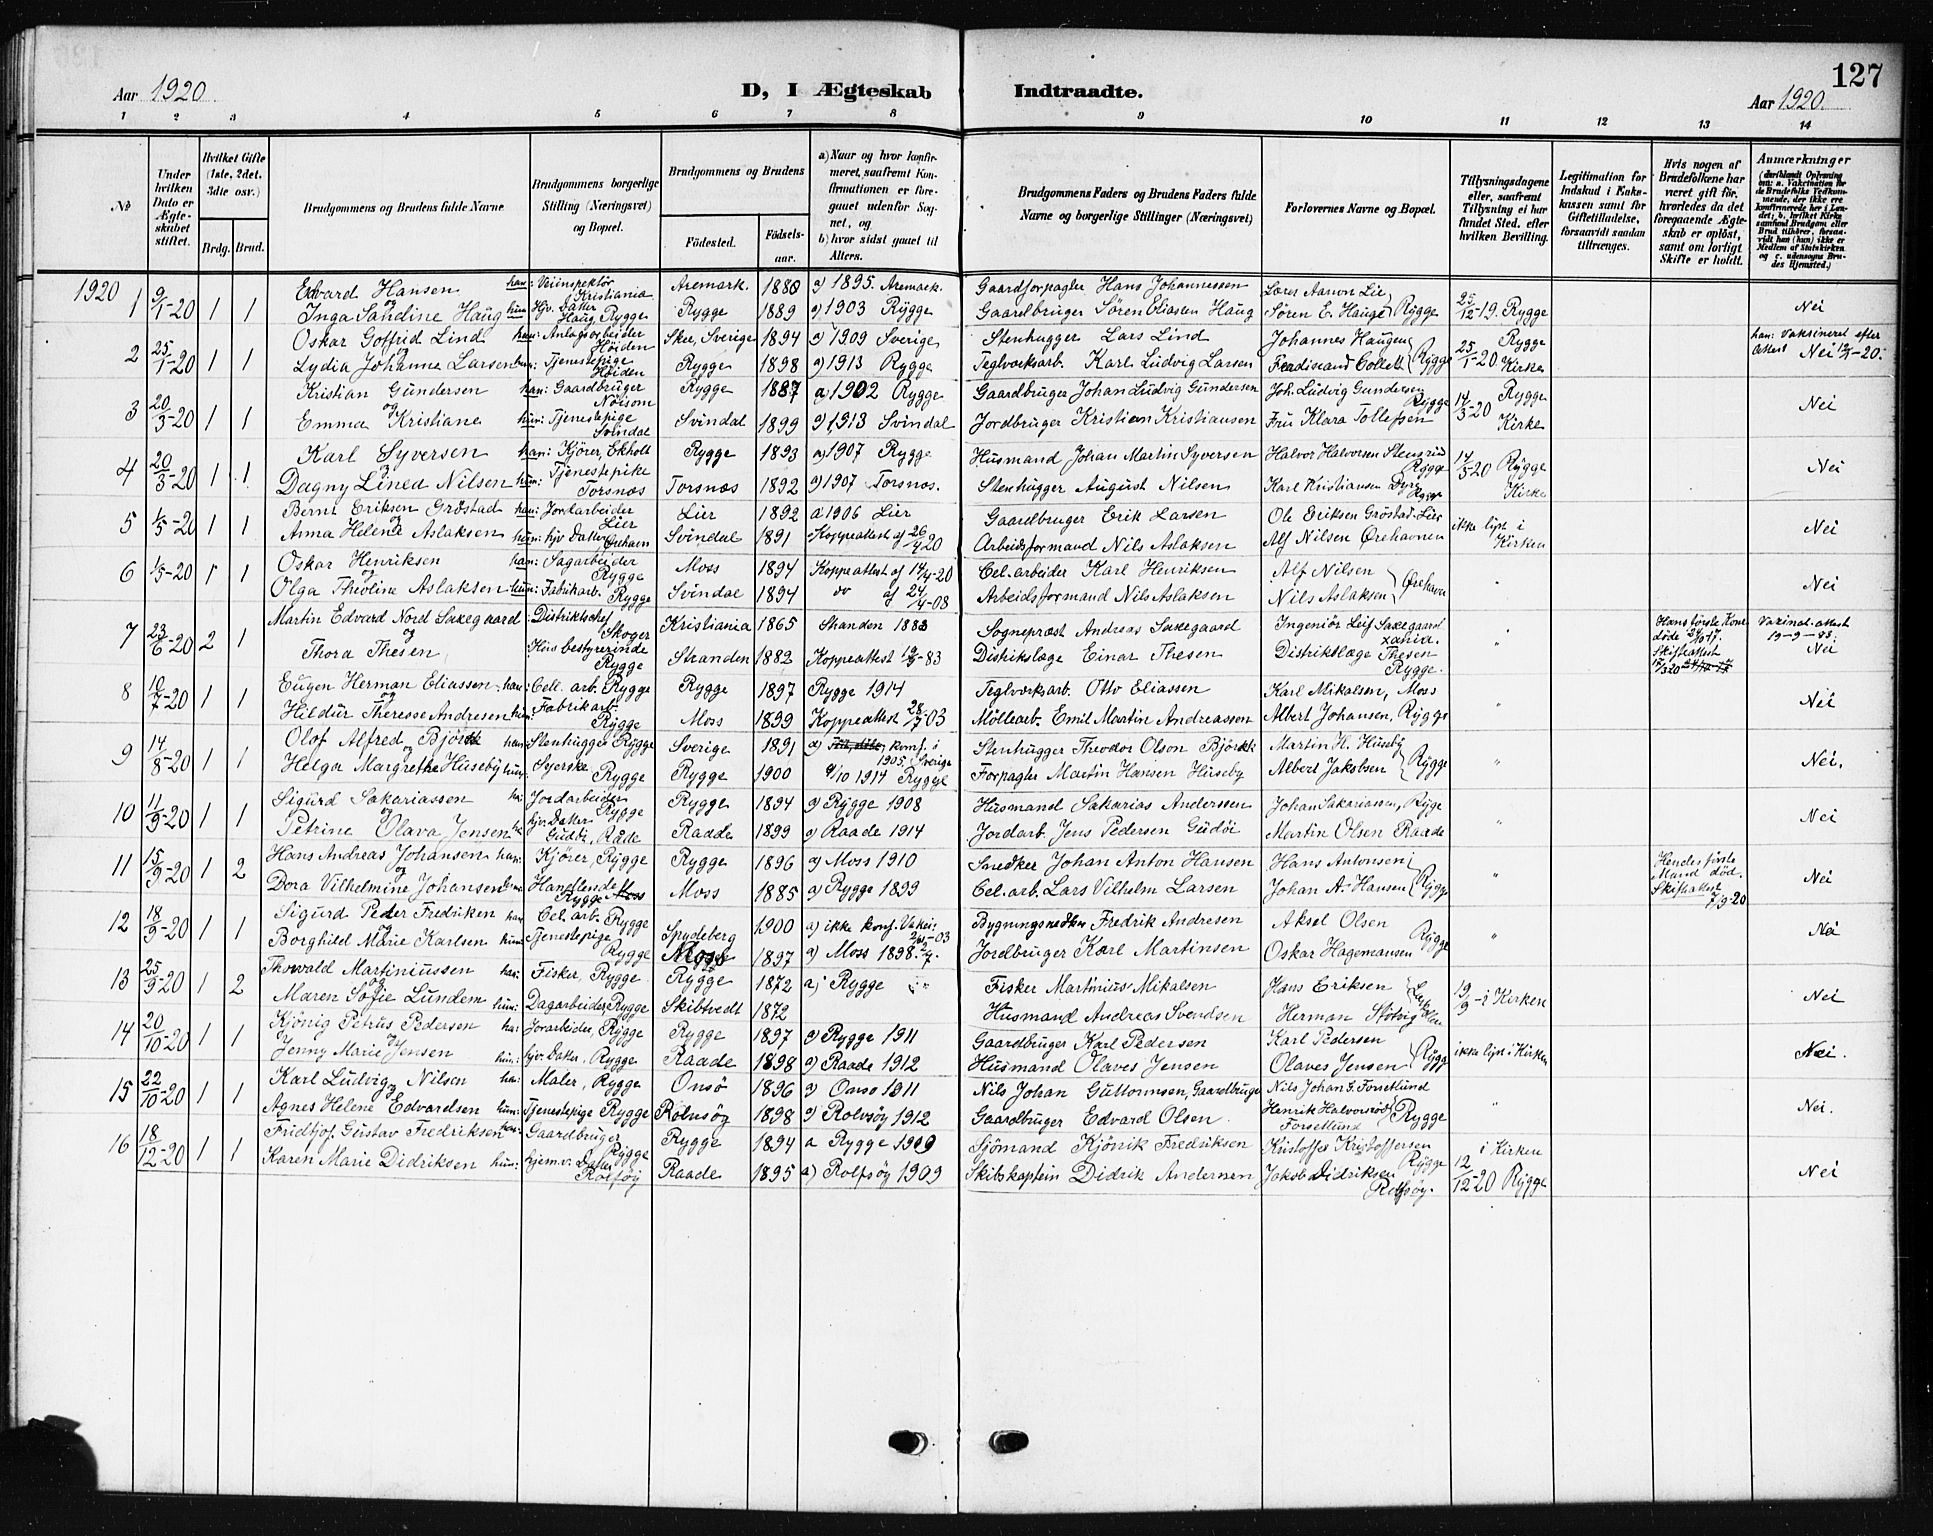 127
Aar 1920
D, I Ægteskab Indtraadte.
Aar 1920.
1 2 3 4 5 6 7 8 9 10 11 12 13 14
No
Under hvilken Dato er Ægteskabet stiftet.
Hvilket Gifte (1ste, 2det, 3die osv.)
Brdg. Brud.
Brudgommens og Brudens fulde Navne
Brudgommens borgerlige Stilling (Næringsvei) og Bopæl.
Brudgommens og Brudens
Fødested.
Fødselsaar.
a) Naar og hvor konfirmeret, saafremt Konfirmationen er foregaaet udenfor Sognet, og
b) hvor sidst gaaet til Alters.
Brudgommens Faders og Brudens Faders fulde Navne og borgerlige Stillinger (Næringsvei)
Forlovernes Navne og Bopæl.
Tillysningsdagene eller, saafremt Tillysning ei har fundet Sted, efter hvilken Bevilling.
Legitimation for Indskud i Enkekassen samt for Giftetilladelse, forsaavidt saadan tiltrænges.
Hvis nogen af Brudefolkene har været gift før, hvorledes da det foregaaende Ægteskab er opløst, samt om lovligt Skifte er holdt.
Anmærkninger (deriblandt Oplysning om: a. Vaksination for de Brudefolks Vedkommende, der ikke ere konfirmerede her i Landet; b. hvilket Kirkesamfund Brudgom eller Brud tilhører, forsaavidt han (hun) ikke er Medlem af Statskirken og c. udensogns Brudes Hjemsted.)
1920
1 9/1-20 1 1 Edvard Hansen han: Veiinspektør Kristiania Aremark. 1880 a) 1895. Aremark. Gaardforpagter Hans Johannessen Lærer Aaron Lie
og Inga Sandine Haug hun: Hjv. Datter Haug, Rygge Rygge 1889 a) 1903 Rygge Gaardbruger Søren Eliasen Haug Søren E. Hauge Rygge 25/12-19. Rygge Nei
2 25/1-20 1 1 Oskar Goffrid Lind han: Anlagsarbeider Høiden Skee, Sverige 1894 a) 1909 Sverige Stenhugger Lars Lind Johannes Haugen Rygge han: Vaksineret efter attest
Lydia Johanne Larsen hun: Tjenestepige Høiden Rygge 1898 a) 1913 Rygge Teglværksarb. Karl Ludvig Larsen Ferdinand Collett Rygge 25/1-20 Kirke Nei
3 20/3-20 1 1 Kristian Gundersen han: Gaardbruger Rygge 1887 a) 1902 Rygge Gaardbruger Johan Ludvig Gundersen Joh. Ludvig Gundersen Rygge 14/3-20 Rygge
og Emma Kristiane hun: Tjenestepige Svindal Svindal 1899 a) 1913 Svindal Jordbruger Kristian Kristiansen Fru Klara Tollefsen Kirke Nei
4 20/3-20 1 1 Karl Syversen han: Kjører, Ekholt Rygge 1893 a) 1907 Rygge Husmand Johan Martin Syversen Halvor Halvorsen Stensrud Rygge 14/3-20 Rygge
Dagny Lined Nilsen hun: Tjenestepike Torsnæs Torsnæs 1892 a) 1907 Torsnæs. Stenhugger August Nilsen Karl Kristiansen Dyre Rygge Kirke Nei
5 1/5-20 1 1 Bernt Eriksen Grøstad han: Jordarbeider Lier Lier 1892 a 1906 Lier Gaardbruger Erik Larsen Ole Eriksen Grøstad. Lier ikke lyst i Kirken
og Anna Helene Aslaksen hun: hjv. Datter Ørehavn Svindal 1891 Koppeattest af 26/4 20 Arbeidsformand Nils Aslaksen Alf Nilsen Ørehavnen Nei
6 1/5-20 1 1 Oskar Henriksen han: Sagarbeider Rygge Moss 1894 Koppeattest af 14/4-20 Cel. arbeider Karl Henriksen Alf Nilsen "
og Olga Theoline Aslaksen hun: Fabrikarb. Rygge Svindal 1894 do af 24/4-08 Arbeidsformand Nils Aslaksen Nils Aslaksen Ørehavn Nei
7 23/6-20 2 1 Martin Edvard Nord Sakegaard : Distriktschef Skoger Kristiania 1865 Stranden 1883 Sogneprest Andreas Sakegaard Ingeniør Leif Sakegaard Xania. " Hans første Kone døde Vaxinal. attest 19-9-83:
og Thora Thesen Husbestyrerinde Rygge Stranden 1882 Koppeattest -83 Distrikslæge Einar Thesen Distrikslæge Thesen Rygge. Skifteattest Nei
8 10/7-20 1 1 Eugen Herman Eliassen han: Cell. arb. Rygge Rygge 1897 Rygge 1914 Teglværksarb. Otto Eliassen Karl Mikalsen, Moss "
og Hildur Therese Andresen hun: Fabrikarb. Rygge Moss 1899 Koppeattest 28/7-03 Møllearb. Emil Martin Andreassen Albert Johansen, Rygge Nei
9 14/8-20 1 1 Olof Alfred Björk han: Stenhugger Rygge Sverige 1891 a) konf. i 1905. Sverige Stenhugger Theodor Olson Björk Martin H. Huseby "
og Helga Margrethe Huseby hun: Syerske Rygge Rygge 1900 4/10 1914 Rygge Forpagter Martin Hansen Huseby Albert Jakobsen Rygge Nei.
10 11/9-20 1 1 Sigurd Sakariassen ha: Jordarbeider Rygge Rygge 1894 a) Rygge 1908 Husmand Sakarias Anderssen Johan Sakariassen, Rygge "
og Petrine Olava Jensen hjv. Datter Raade 1899 a) Raade 1914 Jordarb. Jens Pedersen Martin Olsen Raade Nei
11 15/9-20 1 2 Hans Andreas Johansen han: Kjører, Rygge Rygge 1896 a) Moss 1910 Snedker Johan Anton Hansen Hans Antonsen " Hendes første Mand død.
og Dora Vilhelmine Johansen Handlende Rygge Moss 1885 a) Rygge 1899 Cel. arb. Lars Vilhelm Larsen Johan A. Hansen Rygge Skifteattest 7/9 20 Nei
12 18/9-20 1 1 Sigurd Peder Fredriken han Cel. arb. Rygge Spydeberg 1900 a) ikke konf. -03 Fredrik Andresen Aksel Olsen "
og Borghild Marie Karlsen hun: Tjenestepige Rygge Moss 1897 a) Moss 1898. Jordbruger Karl Martinsen Oskar Hagemansen Rygge Nei
13 25/9-20 1 2 Thorvald Martiniussen han: Fisker, Rygge Rygge 1872 a) Rygge Fisker Martinius Mikalsen Hans Eriksen 19/9 - i Kirken
og Maren Sofie Lundem hun: Dagarbeider, Rygge Skibtvedt 1872 Husmand Andreas Svendsen Herman Nei
14 20/10-20 1 1 Kjönig Petrus Pedersen ha: Jorarbeider, Rygge Rygge 1897 a) Rygge 1911 Gaardbruger Karl Pedersen Karl Pedersen
og Jenny Marie Jensen hun: hjv. Datter, Rygge Raade 1898 a) Raade 1912 Husmand Olaves Jensen Olaves Jensen Rygge ikke lyst i Kirken Nei.
15 22/10-20 1 1 Karl Ludvig Nilsen ha: Maler, Rygge Onsö 1896 a) Onsö 1911 Nils Johan Guttormsen, Gaardbruger Nils Johan G. Forsetlund "
og Agnes Helene Edvardsen hun: Tjenestepige Rygge Rolvsöy 1898 a) Rolvsöy 1912 Gaardbruger Edvard Olsen. Henrik Halvorsrød Forsetlund Rygge Nei.
16 18/12-20 1 1 Fridtjof Gustav Fredriksen han: Gaardbruger Rygge Rygge 1894 a Rygge 1909 Sjömand Kjönik Fredriksen Kristoffer Kristoffersen Rygge i Kirken
Karen Marie Didriksen hun: hjem.v. Datter Rolfsöy Raade 1895 a) Rolfsöy 1909 Skibskaptein Didrik Andersen Jakob Didriksen Rolfsöy. 12/12-20 Rygge Nei